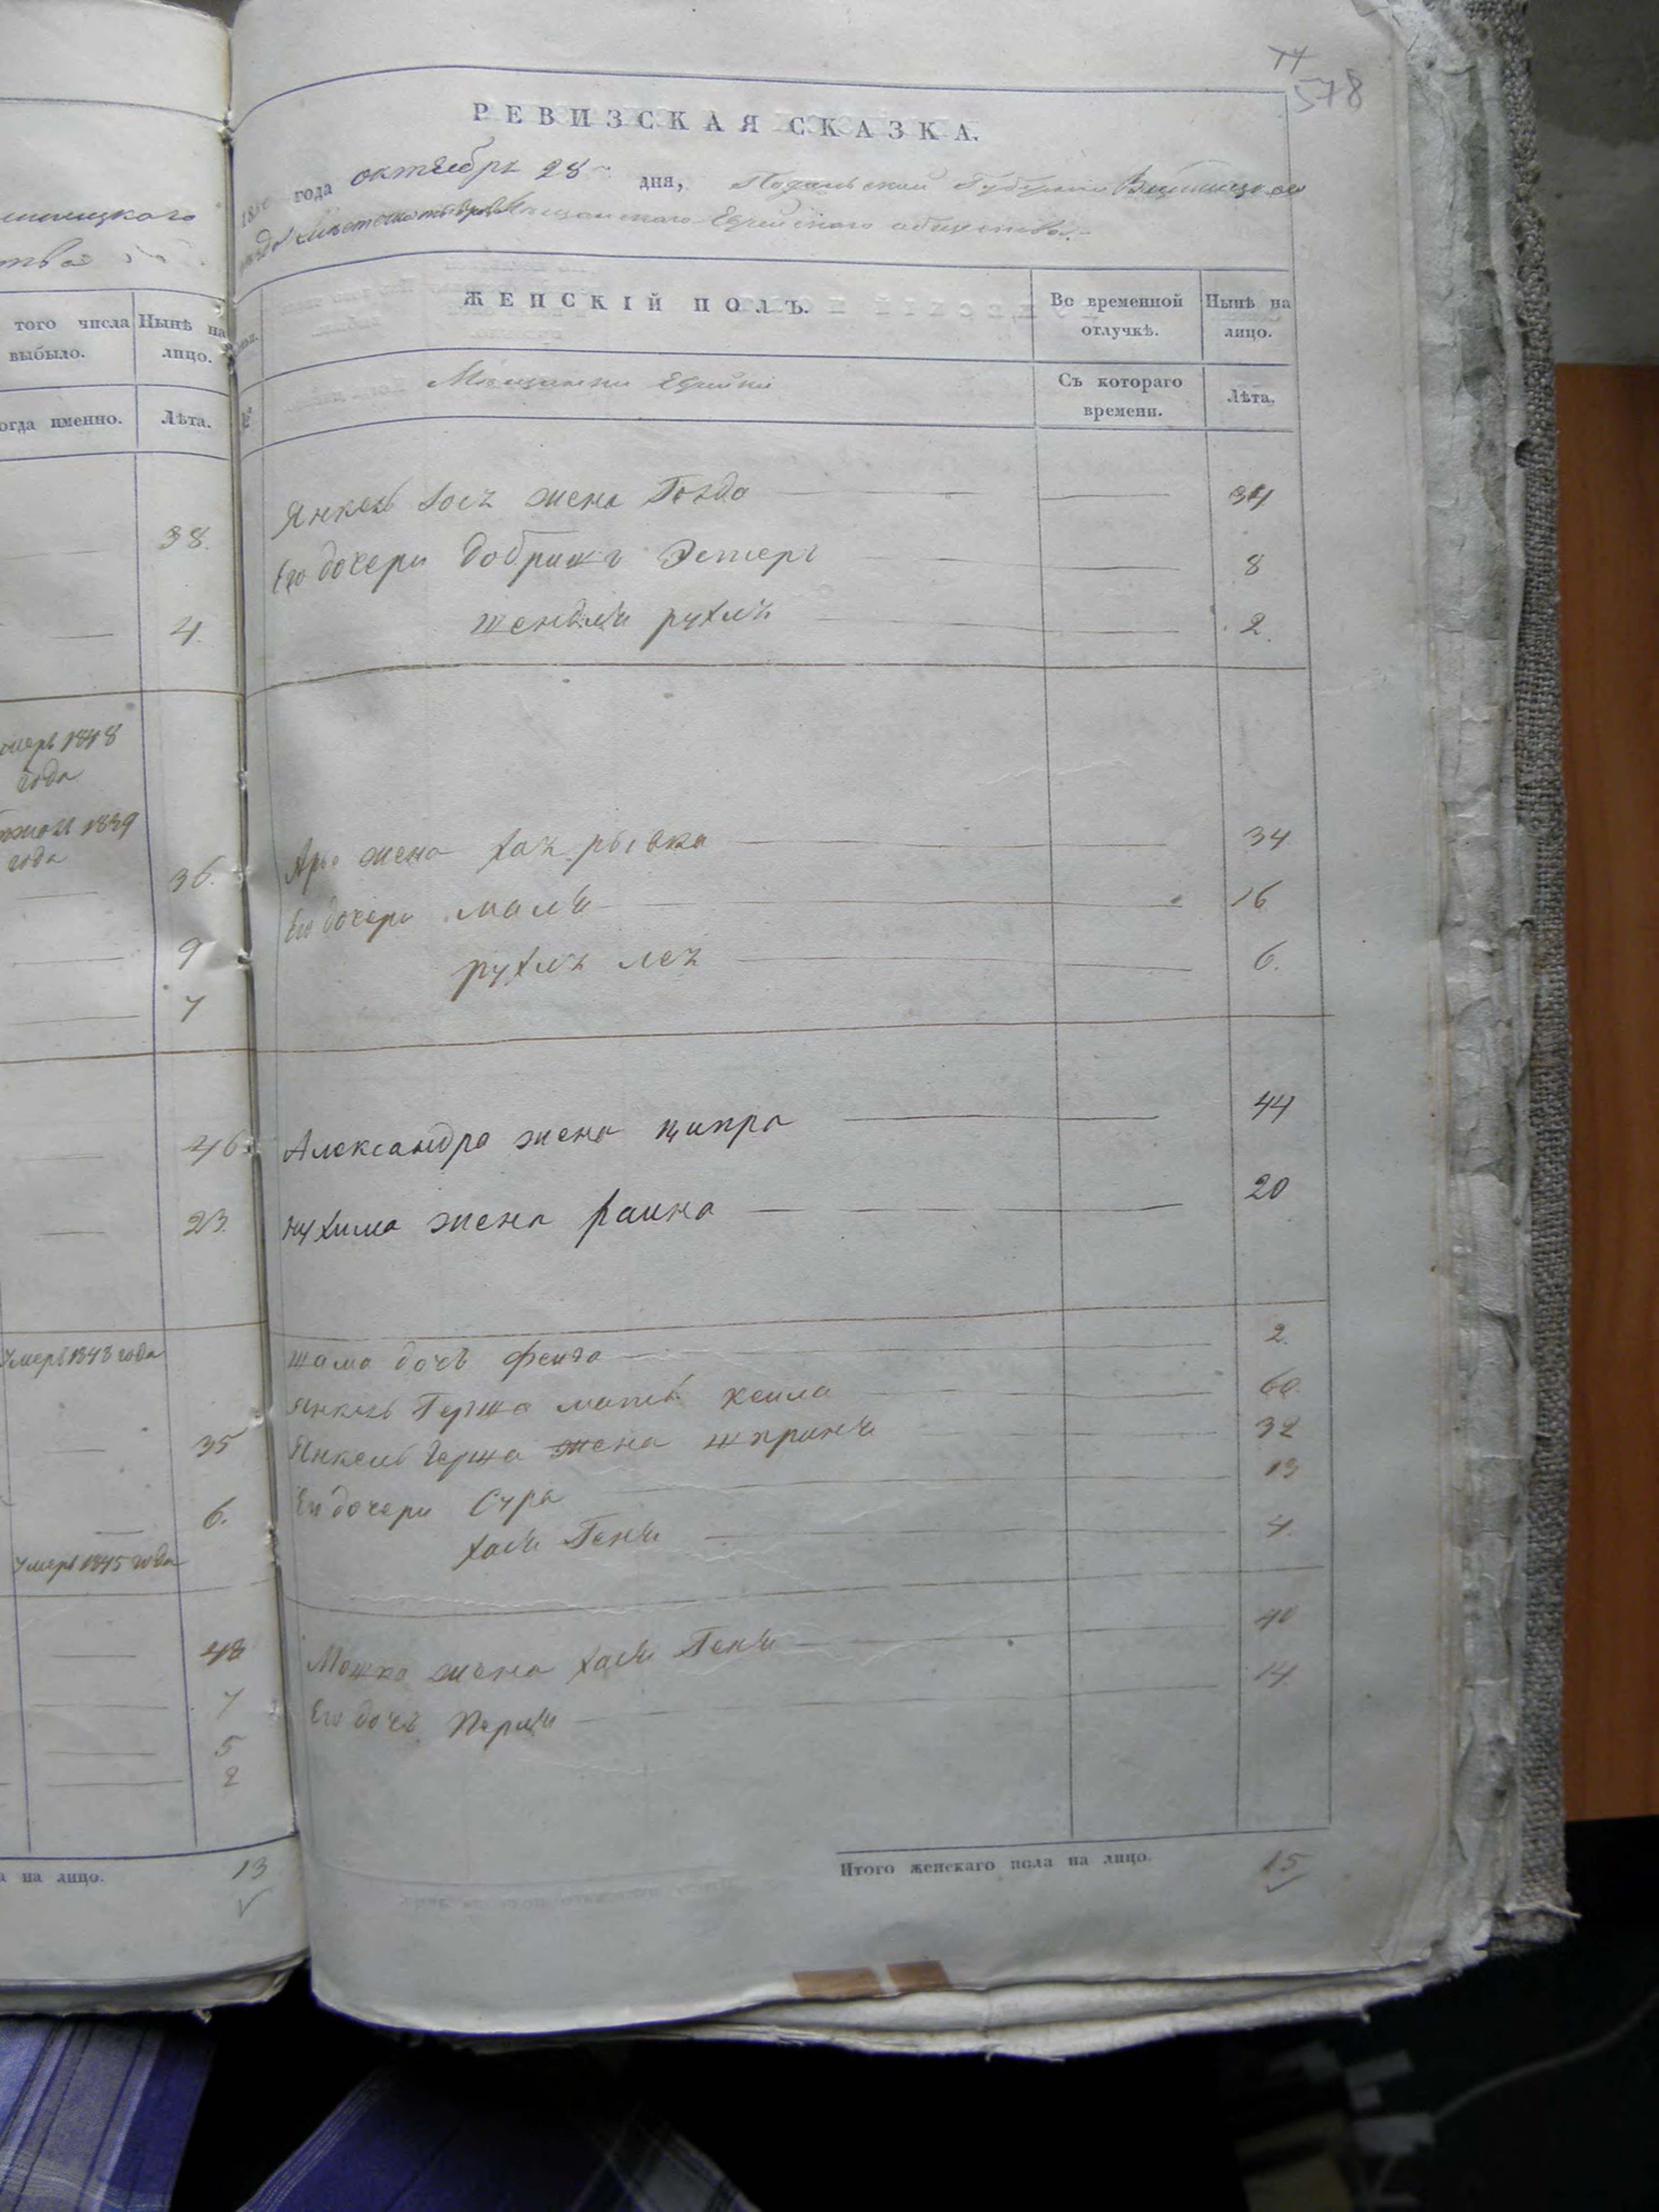 мницкаго
того числа выбыло.
Нынѣ на лицо.
огда именно.
Лѣта.
38.
4.
умеръ 1848
года
1839
года
36.
9
7
46.
23.
умеръ 1848 года
35
6.
умеръ 1845 года
48
7
5
2
на лицо.
13
578
РЕВИЗСКАЯ СКАЗКА.
года октября 28 дня, Подольской Губерніи Винницкаго
Мещанскаго Еврейскаго общества.
ЖЕНСКІЙ ПОЛЪ.
Во временной отлучкѣ.
Нынѣ на лицо.
Мещанки Еврейки
Съ котораго времени.
Лѣта.
Янкель жена Голда 34
Его дочери Добришъ Эстеръ 8
рухля 2.
Арьо жена хая рывка 34
Его дочери маля 16
рухля лея 6.
Александра жена ципра 44
нухима жена раина 20
шама дочь феига 2.
Янкель Герша мать кеила 60
Янкель Герша жена шприня 32
Его дочери Сура 13
хая Геня 4.
Мошка жена хая Геня 40
Его дочь Перля 14
Итого женскаго пола на лицо. 15